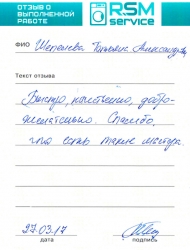 ОТЗЫВ О ВЫПОЛНЕННОЙ РАБОТЕ
RSM service
ФИО Шепелева Татьяна Александровна
Текст отзыва
Быстро, качественно, добро-
желательно. Спасибо,
что есть такие мастера.
27.03.17
дата
подпись